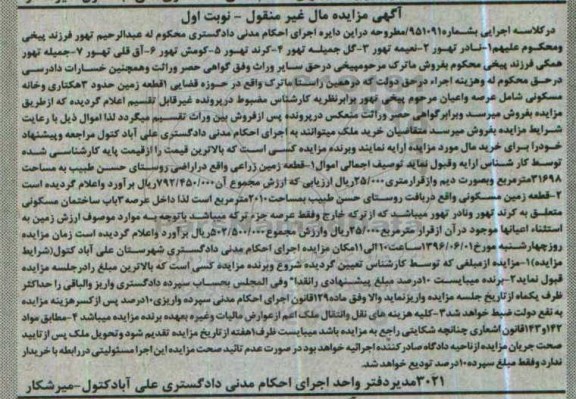 آگهی مزایده مال غیر منقول - نوبت اول
درکلاسه اجرایی بشماره ۹۵۱۰۹۱/مطروحه دراین دایره اجرای احکام مدنی دادگستری محکوم له عبدالرحیم تهور فرزند پیخی
ومحکوم علیهم۱-نادر تهور ۲-نعیمه تهور ۳-گل جمیله تهور ۴-کرند تهور ۵-کومش تهور ۶-آق قلی تهور ۷-جمیله تهور
همکی فرزند پیخی محکوم بفروش ماترک مرحومپیخی درحق سایر وراث وفق گواهی حصر وراثت وهمچنین خسارات دادرسی
درحق محکوم له وهزینه اجراء درحق دولت که درهمین راستا ماترک واقع در حوزه قضایی ۱قطعه زمین حدود ۳هکتاری وخانه
مسکونی شامل عرصه واعیان مرحوم پیخی تهور برابرنظریه کارشناس مضبوط درپرونده غیرقابل تقسیم اعلام گردیده که ازطریق
مزایده بفروش میرسد وبرابرگواهی حصر وراثت منعکس درپرونده پس ازفروش بین وراث تقسیم میگردد لذا اموال ذیل با رعایت
شرایط مزایده بفروش میرسد متقاضیان خرید ملک میتوانند به اجرای احکام مدنی دادگستری علی آباد کتول مراجعه وپیشنهاد
خودرا برای خرید مال مورد مزایده ارایه نمایند وبرنده مزایده کسی است که بالاترین قیمت را ازقیمت پایه کارشناسی شده
توسط کار شناس ارایه وقبول نماید توصیف اجمالی اموال۱-قطعه زمین زراعی واقع دراراضی روستای حسن طبیب به مساحت
۳۱۶۹۸مترمربع وبصورت دیم وازقرارمتری۲۵/۰۰۰ریال ارزیابی که ارزش مجموع آن۷۹۲/۴۵۰/۰۰۰ریال برآورد واعلام گردیده است
۲-قطعه زمین مسکونی واقع دربافت روستای حسن طبیب بمساحت۲۰۱۰مترمربع است لذا داخل عرصه۲باب ساختمان مسکونی
متعلق به کرند تهور ونادر تهور میباشد که ازترکه خارج وفقط عرصه جزء ترکه میباشد باتوجه به موارد موصوف ارزش زمین به
استثناء اعیانها موجود درآن ازقرار مترمربع۲۵۰/۰۰۰ریال وارزش مجموع۵۰۲/۵۰۰/۰۰۰ریال برآورد واعلام گردیده است زمان مزایده
روزچهارشنبه مورخ۱۳۹۶/۰۶/۰۱ساعت۱۰الی۱۱مکان مزایده اجرای احکام مدنی دادگستری شهرستان علی آباد کتول(شرایط
مزایده)۱-مزایده ازمبلغی که توسط کارشناس تعیین گردیده شروع وبرنده مزایده کسی است که بالاترین مبلغ رادرجلسه مزایده
قبول نماید۲-برنده میبایست ۱۰درصد مبلغ پیشنهادی رانقدا" وفی المجلس بحساب سپرده دادگستری واریز والباقی را حداکثر
ظرف یکماه ازتاریخ جلسه مزایده واریزنماید والا وفق ماده۱۲۹قانون اجرای احکام مدنی سپرده واریزی۱۰درصد پس ازکسرهزینه مزایده
به نفع دولت ضبط خواهد شد۳-کلیه هزینه های نقل وانتقال ملک اعم ازعوارض مالیات وغیره بعهده برنده مزایده میباشد ۴-مطابق مواد
۱۴۲و۱۴۳قانون اشعاری چنانچه شکایتی راجع به مزایده باشد میبایست ظرف۱هفته ازتاریخ مزایده تقدیم شود وتحویل ملک پس ازتایید
صحت جریان مزایده ازناحیه دادگاه صادرکننده اجرائیه خواهد بود درصورت عدم تائید صحت مزایده این اجرا مسئولیتی دررابطه با خریدار
ندارد وفقط مبلغ سپرده۱۰درصد تودیع خواهد شد.
۳۰۲۱مدیر دفتر واحد اجرای احکام مدنی دادگستری علی آبادکتول-میرشکار